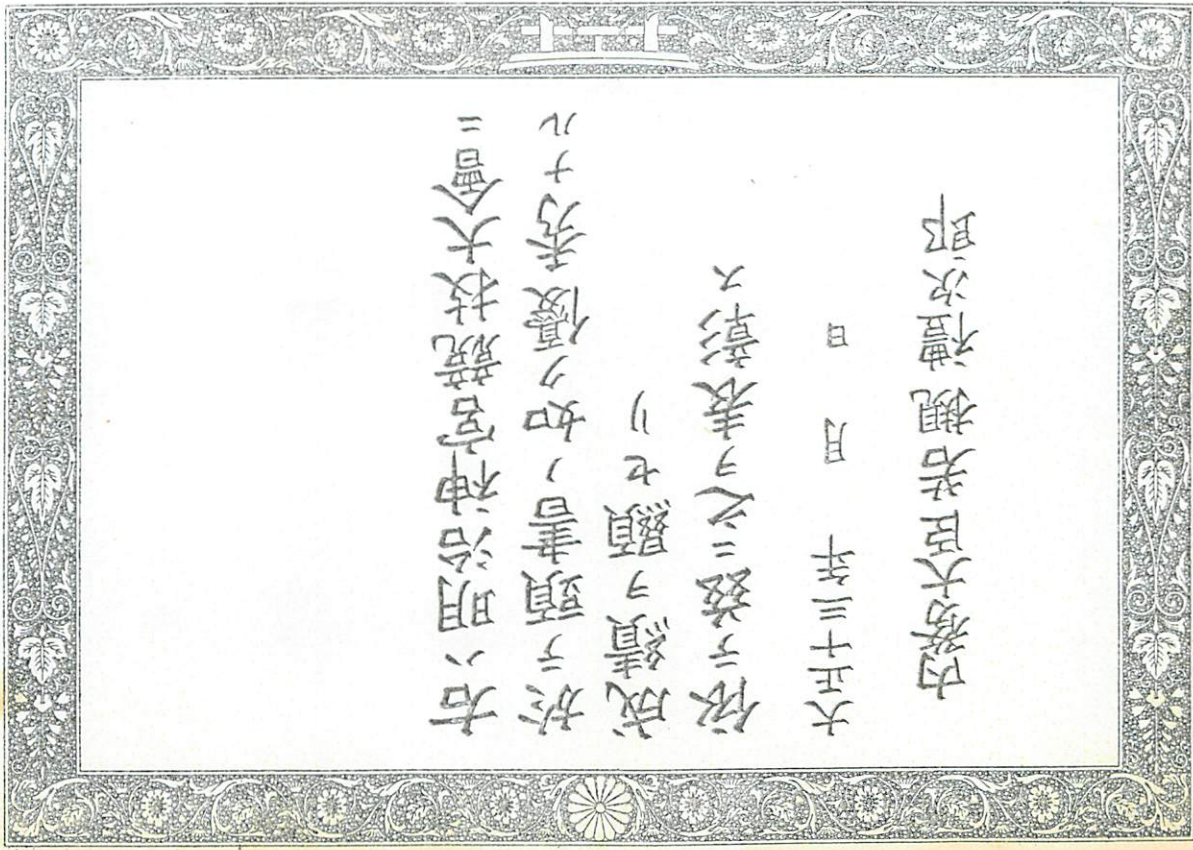 右ハ明治神宮競技大會ニ
於テ頭書ノ如ク優秀ナル
成績ヲ顯セリ
依テ玆ニ之ヲ表彰ス
大正十三年　月　日
内務大臣若槻禮次郎